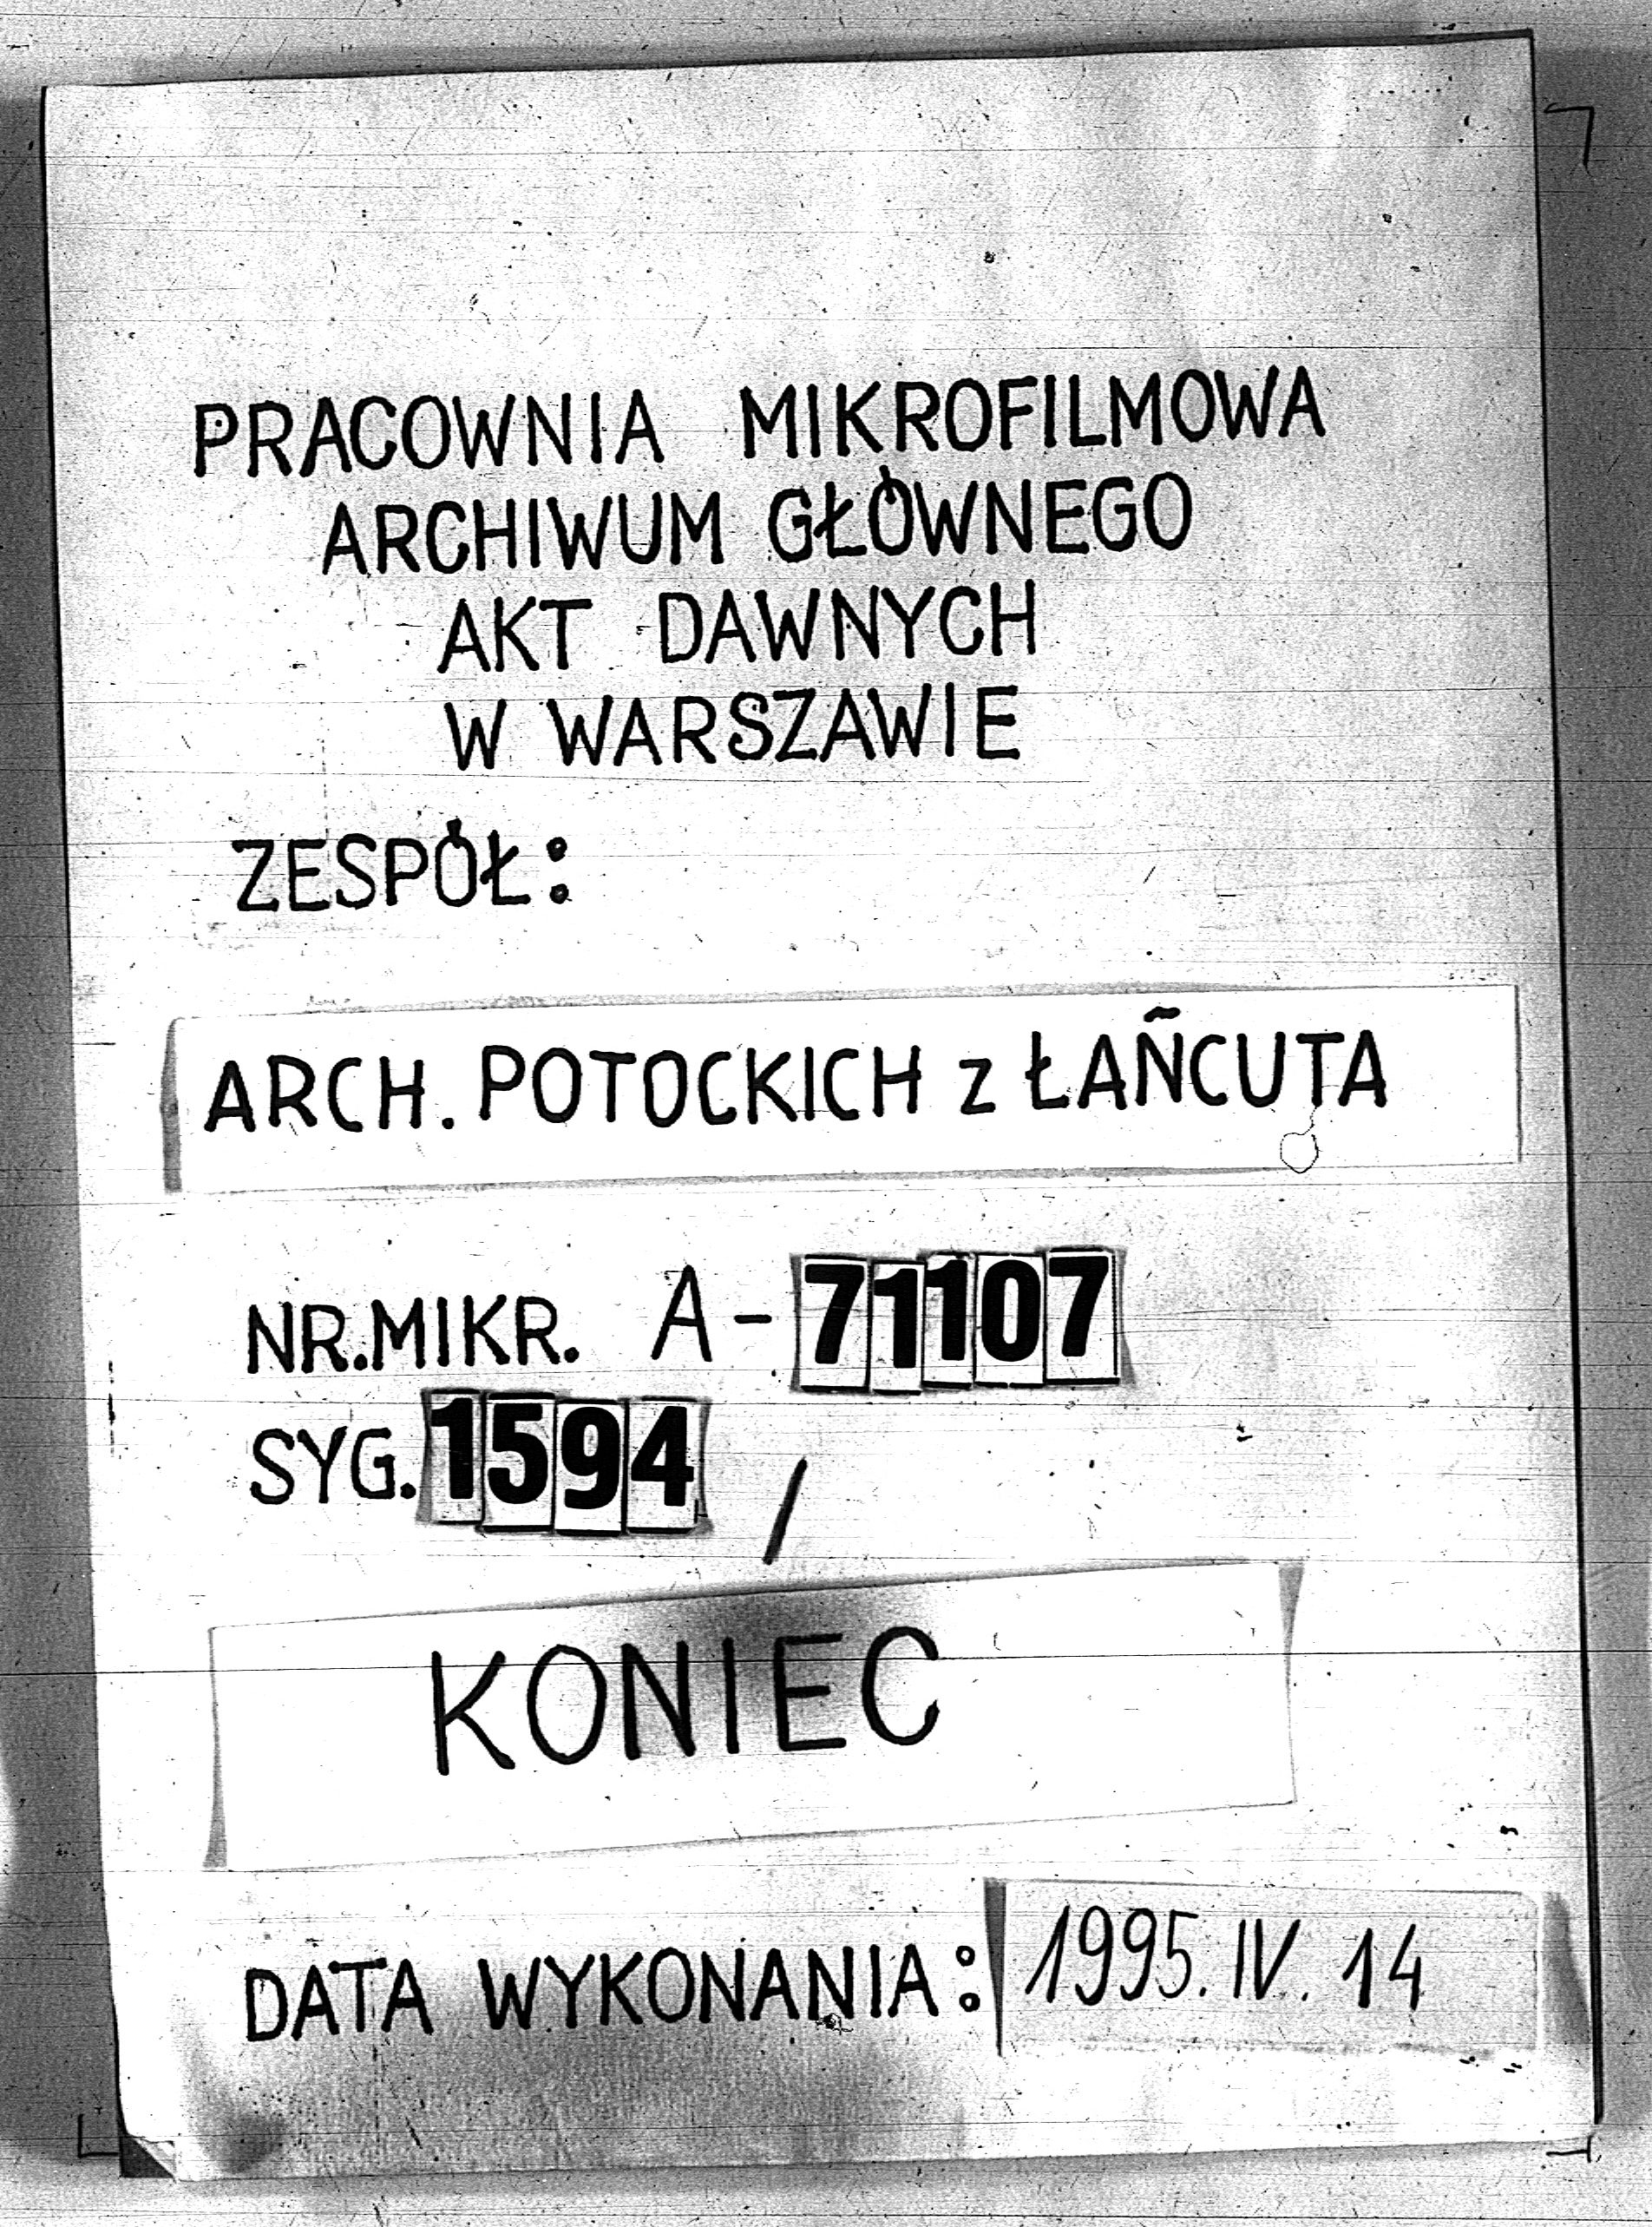 PRACOWNIA MIKROFILMOWA
ARCHIWUM GŁÓWNEGO
AKT DAWNYCH
W WARSZAWIE
ZESPÓŁ:
ARCH. POTOCKICH z ŁAŃCUTA
NR.MIKR. A-71107
SYG. 1594 /
KONIEC
DATA WYKONANIA: 1995. IV. 14